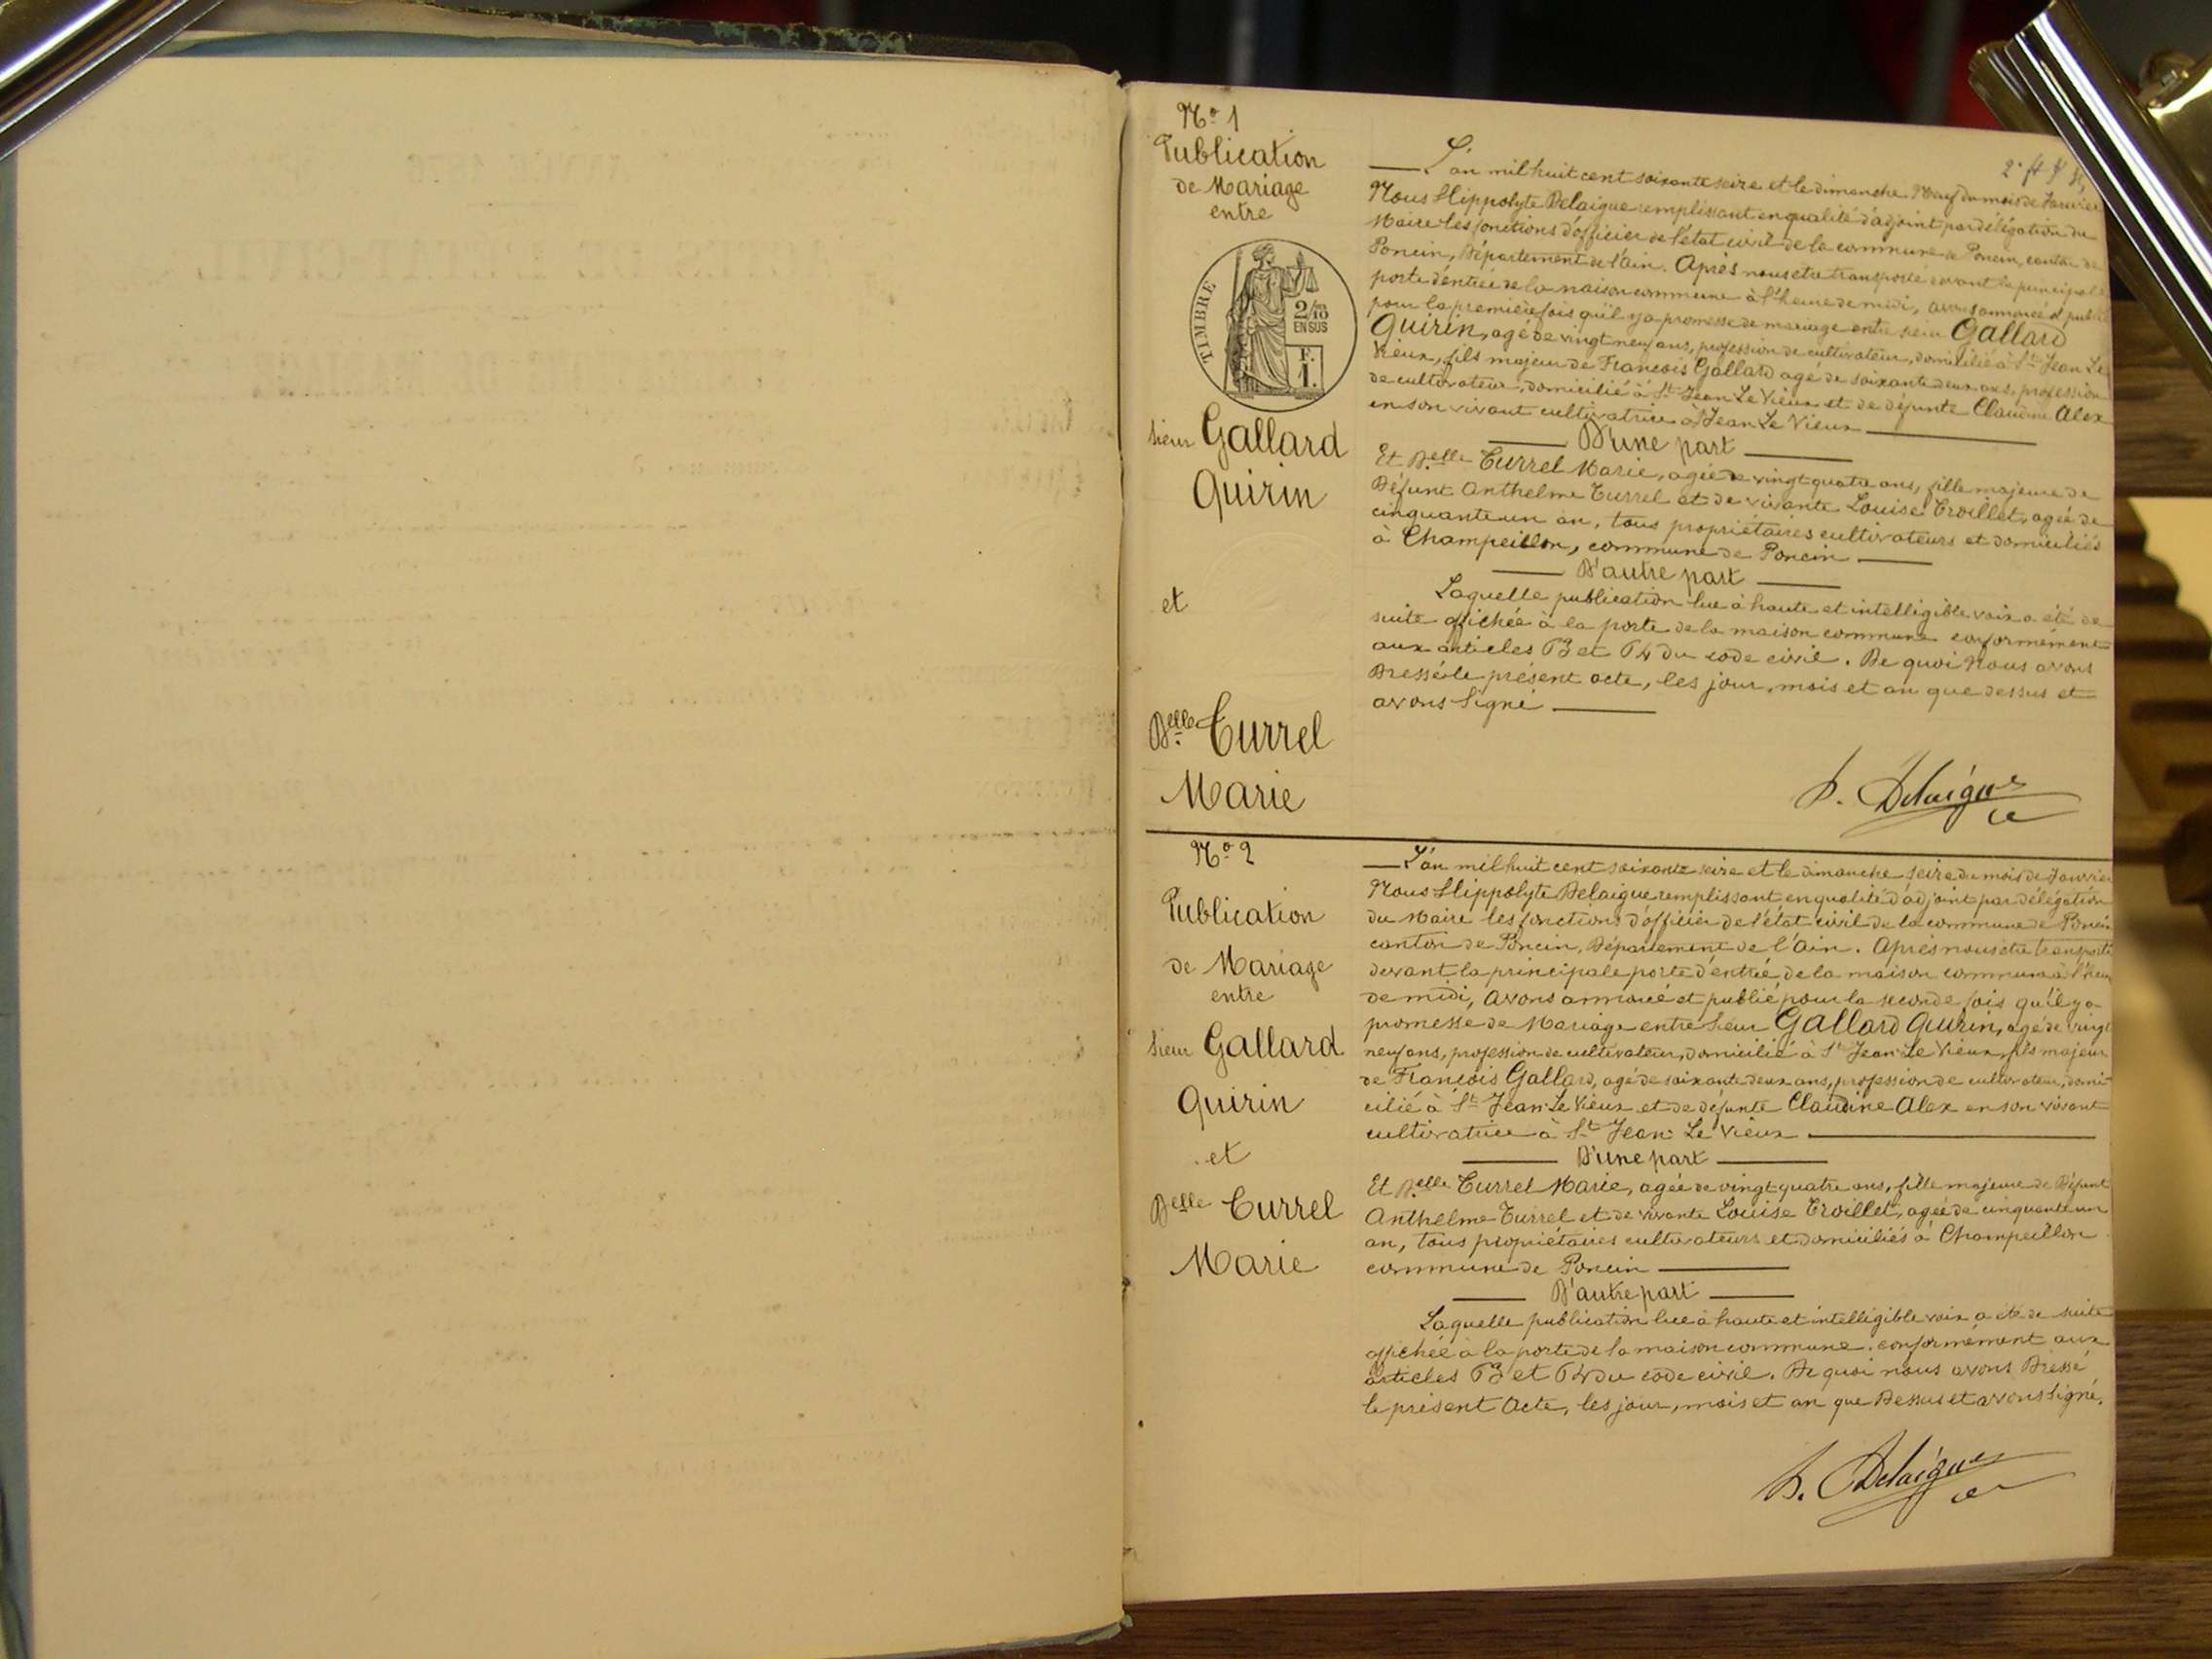 No 1
Publication
de Mariage
entre
TIMBRE
2/10
EN SUS
F.
1.
sieur Gallard
Quirin
et
Delle Turrel
Marie
L'an mil huit cent soixante seize et le dimanche Neuf du mois de Janvier
Nous Hippolyte Delaigue remplissant en qualité d'adjoint par délégation du
Maire les fonctions d'officier de l'état civil de la commune de Poncin, canton de
Poncin, Département de l'Ain. Après nous etre transporté devant la principale
porte d'entrée de la maison commune à l'heure de midi, avons annoncé et publié
pour la première fois qu'il y a promesse de mariage entre sieur Gallard
Quirin, agé de vingt neuf ans, profession de cultivateur, domicilié à St Jean Le
Vieux, fils majeur de Francois Gallard agé de soixante deux ans, profession
de cultivateur, domicilié à St Jean Le Vieux et de défunte Claudine Alex
en son vivant cultivatrice à St Jean Le Vieux
D'une part
Et Delle Turrel Marie, agée de vingt quatre ans, fille majeure de
Défunt Anthelme Turrel et de vivante Louise Troillet, agée de
cinquante un an, tous propriétaires cultivateurs et domiciliés
à Champeillon, commune de Poncin
D'autre part
Laquelle publication lue à haute et intelligible voix a été de
suite affichée à la porte de la maison commune conformément
aux articles 63 et 64 du code civil. De quoi Nous avons
Dressé le présent acte, les jour, mois et an que dessus et
avons signé
h. Delaigue
No 2
Publication
de Mariage
entre
sieur Gallard
Quirin
et
Delle Turrel
Marie
L'an mil huit cent soixante seize et le dimanche seize du mois de Janvier
Nous Hippolyte Delaigue remplissant en qualité d'adjoint par délégation
du Maire les fonctions d'officier de l'état civil de la commune de Poncin
canton de Poncin, Département de l'Ain. Après nous etre transporté
devant la principale porte d'entrée de la maison commune à l'heure
de midi, avons annoncé et publié pour la seconde fois qu'il y a
promesse de Mariage entre sieur Gallard Quirin, agé de vingt
neuf ans, profession de cultivateur, domicilié à St Jean Le Vieux, fils majeur
de Francois Gallard, agé de soixante deux ans, profession de cultivateur, domi-
cilié à St Jean Le Vieux et de défunte Claudine Alex en son vivant
cultivatrice à St Jean Le Vieux
D'une part
Et Delle Turrel Marie, agée de vingt quatre ans, fille majeure de Défunt
Anthelme Turrel et de vivante Louise Troillet, agée de cinquante un
an, tous propriétaires cultivateurs et domiciliés à Champeillon
commune de Poncin
D'autre part
Laquelle publication lue à haute et intelligible voix a été de suite
affichée à la porte de la maison commune conformément aux
articles 63 et 64 du code civil. De quoi nous avons Dressé
le présent Acte, les jour, mois et an que Dessus et avons signé.
h. Delaigue